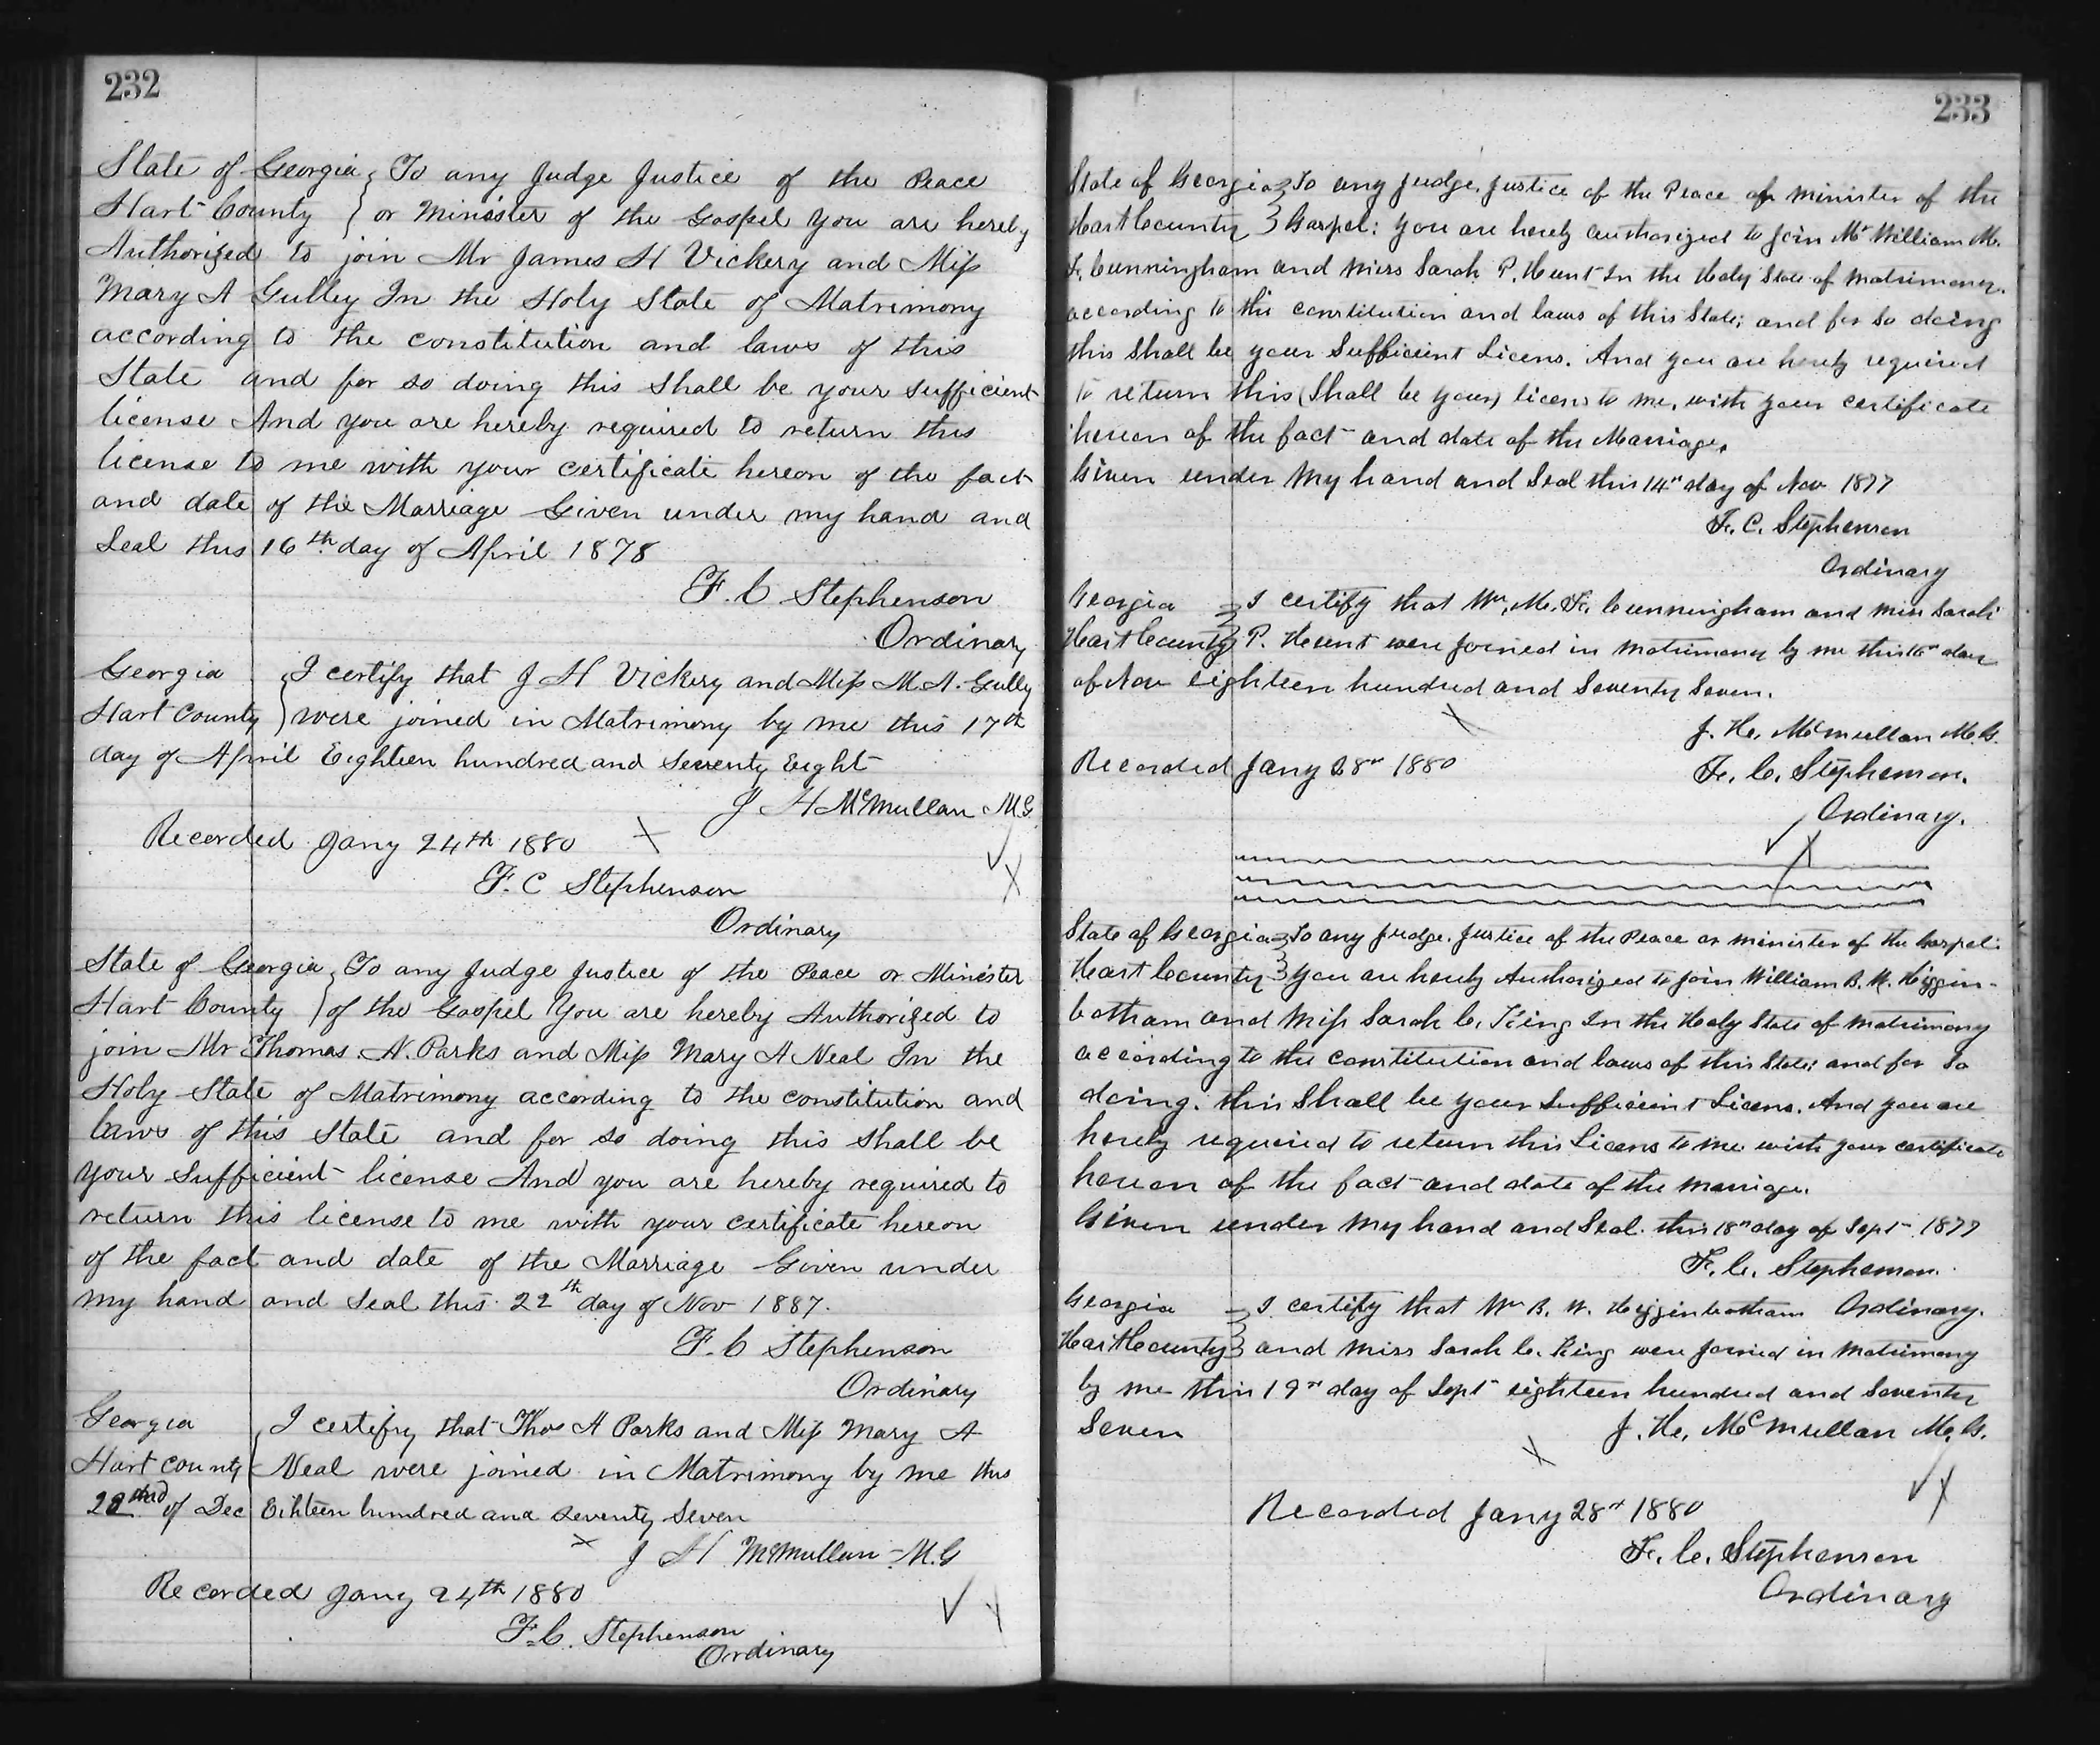 232
State of Georgia } To any Judge Justice of the Peace
Hart County } or Minister of the Gospel You are hereby
Authorized to join Mr James H Vickery and Miss
Mary A Gulley In the Holy State of Matrimony
according to the constitution and laws of this
State and for so doing this shall be your sufficient
license And you are hereby required to return this
license to me with your certificate hereon of the fact
and date of the Marriage Given under my hand and
Seal this 16th day of April 1878
F. C Stephenson
Ordinary
Georgia } I certify that J H Vickery and Miss M. A. Gully
Hart County } were joined in Matrimony by me this 17th
day of April Eighteen hundred and Seventy Eight
J H McMullan M.G.
Recorded Jany 24th 1880
F. C Stephenson
Ordinary
State of Georgia } To any Judge Justice of the Peace or Minister
Hart County } of the Gospel You are hereby Authorized to
join Mr Thomas N. Parks and Miss Mary A Neal In the
Holy State of Matrimony according to the constitution and
laws of this State and for so doing this shall be
your Sufficient license And you are hereby required to
return this license to me with your certificate hereon
of the fact and date of the Marriage Given under
my hand and Seal this 22th day of Nov 1887.
F. C Stephenson
Ordinary
Georgia } I certify that Thos A Parks and Miss Mary A
Hart County } Neal were joined in Matrimony by me this
of Dec Eihteen hundred and Seventy Seven
J H McMullan M.G
Recorded Jany 24th 1880
F. C. Stephenson
Ordinary
233
State of Georgia } To any Judge, Justice of the Peace or minister of the
Hart County } Gospel: You are hereby authorized to join Mr William M.
F. Cunningham and Miss Sarah P. Hunt In the Holy State of matrimony.
according to the constitution and laws of this State; and for so doing
this Shall be your Sufficient Licens. And you are hereby required
to return this (Shall be your) licens to me, with your certificate
hereon of the fact and date of the Marriage.
Given under my hand and Seal this 14th day of Nov 1877
F. C. Stephenson
Ordinary
Georgia } I certify that Wm. M. F. Cunningham and miss Sarah
Hart County } P. Hunt were joined in matrimony by me this 16th day
of Nov eighteen hundred and Seventy Seven.
J. H. McMullan M.G.
Recorded Jany 28th 1880
F. C. Stephenson.
Ordinary.
State of Georgia } To any Judge, Justice of the Peace or minister of the Gospel:
Hart County } You are hereby Authorized to join William B. W. Higgin-
botham and Miss Sarah C. King In the Holy State of matrimony
according to the constitution and laws of this State; and for So
doing. this Shall be your Sufficient Licens. And you are
hereby required to return this Licens to me with your certificate
hereon of the fact and date of the marriage.
Given under my hand and Seal. this 18th day of Sept 1877
F. C. Stephenson.
Georgia } I certify that Wm B. W. Higginbotham Ordinary.
Hart County } and Miss Sarah C. King were joined in matrimony
by me this 19th day of Sept eighteen hundred and Seventy
Seven
J. H. McMullan M.G.
Recorded Jany 28th 1880
F. C. Stephenson
Ordinary